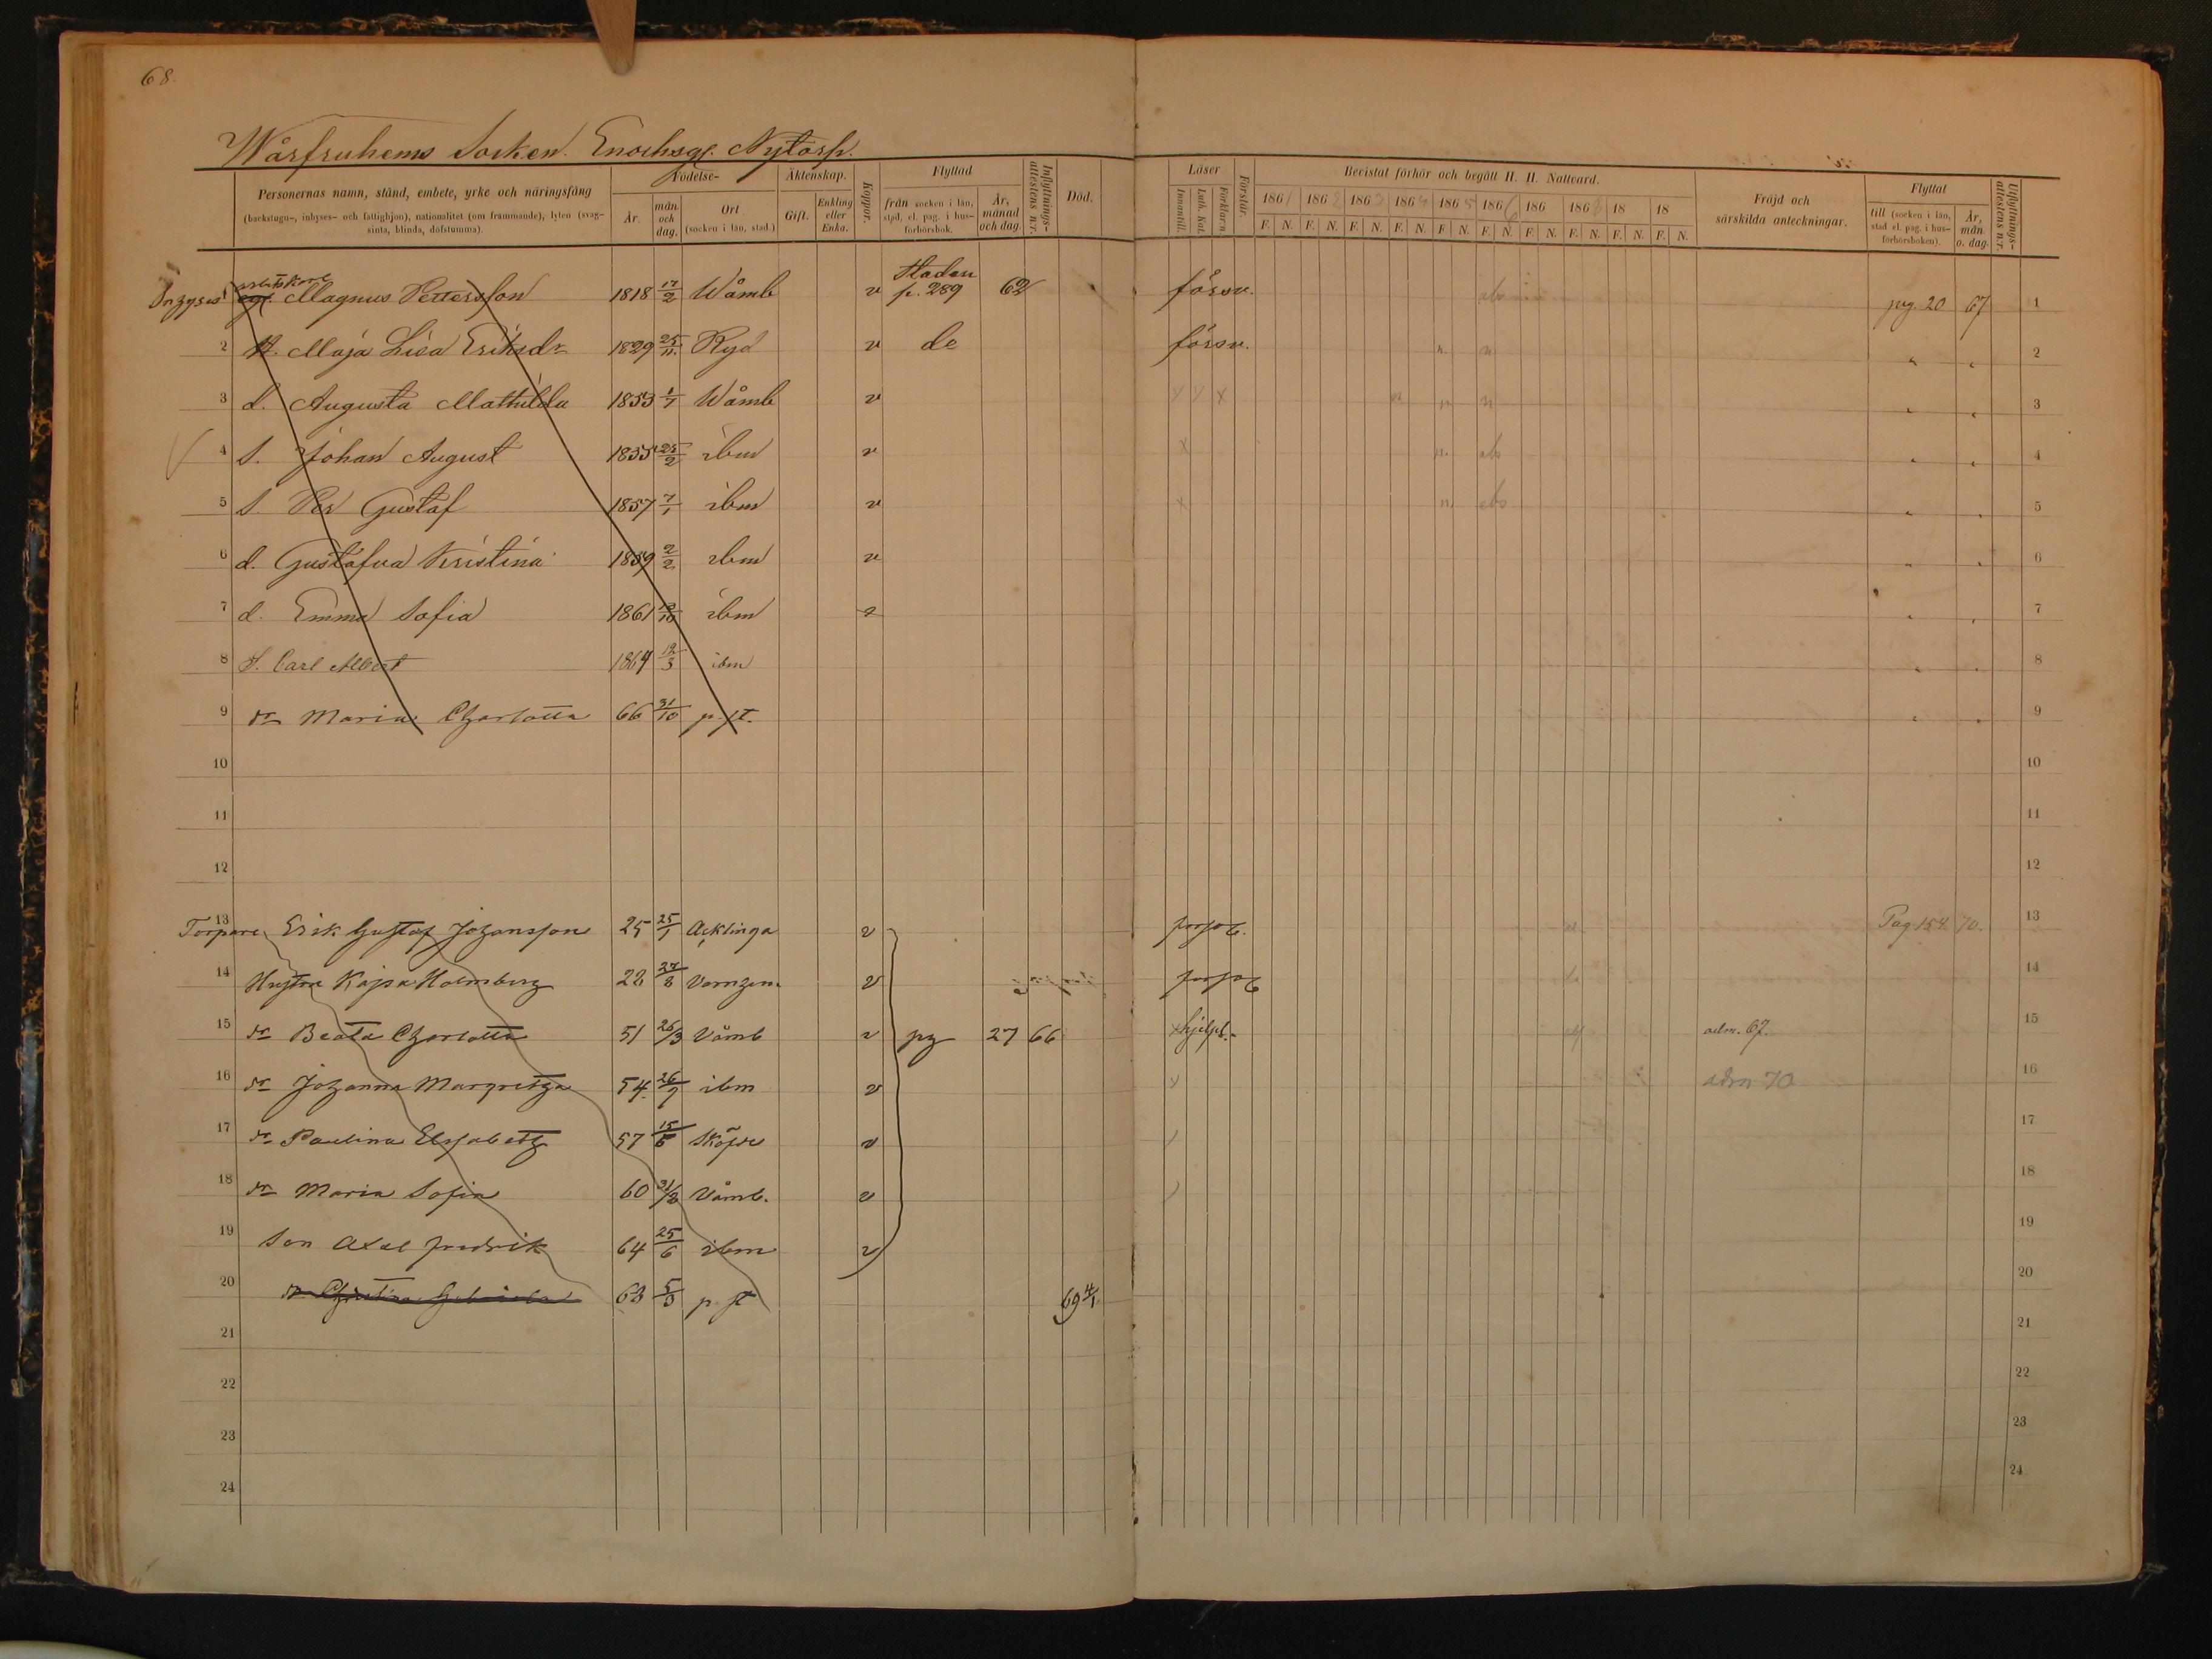 68.
Wårfruhems Socken. Enochsg. Nytorp.
Personernas namn, stånd, embete, yrke och näringsfång
(backstugu-, inhyses- och fattighjon), nationalitet (om främmande), lyten (svagsinta, blinda, döfstumma).
Födelse- År. mån. och dag. Ort (socken i län, stad.)
Äktenskap. Gift. Enkling eller Enka.
Koppor.
Flyttad från socken i län, stad, el. pag. i husförhörsbok. År, månad och dag.
Inflyttnings-attestens n:r.
Död.
Läser Innantill. Luth. Kat. Förklar:n
Förstår.
Bevistat förhör och begått H. H. Nattvard.
1861 1862 1863 1864 1865 1866 186 1868 18 18
F. N. F. N. F. N. F. N. F. N. F. N. F. N. F. N. F. N. F. N.
Fräjd och särskilda anteckningar.
Flyttat till (socken i län, stad el. pag. i husförhörsboken). År, mån. o. dag.
Utflyttnings-attestens n:r.
1 Magnus Pettersson 1818 17/2 Wåmb v Staden p. 289 62 försv. abs pag. 20 67 1
2 H. Maja Lisa Eriksdr 1829 25/11 Ryd v do försv. n. n " " 2
3 d. Augusta Mathilda 1853 1/7 Wåmb v x x x n n n " " 3
4 S. Johan August 1855 25/2 ibm v x n. abs " " 4
5 S. Per Gustaf 1857 7/1 ibm v x n abs " " 5
6 d. Gustafva Kristina 1859 2/2 ibm v " " 6
7 d. Emma Sofia 1861 /10 ibm v " " 7
8 S. Carl Albert 1864 12/3 ibm " " 8
9 dr Maria Charlotta 66 31/10 p. st. " " 9
10 10
11 11
12 12
13 Torpare Erik Gustaf Johansson 25 25/1 Acklinga v Pag. 154 70. 13
14 Hustru Kajsa Holmberg 28 27/8 v 14
15 dr Beata Charlotta 51 26/3 Våmb v pg 27 66 x hjelpl. adm. 67. 15
16 dr Johanna Margretha 54. 26/7 ibm v adm 70 16
17 dr Paulina Elisabeth 57 15/6 Sköfde v 17
18 dr Maria Sofia 60 31/8 Våmb. v 18
19 Son Axel Fredrik 64 25/6 ibm v 19
20 dr Christina 68 5/3 p. st 69 4/1. 20
21 21
22 22
23 23
24 24